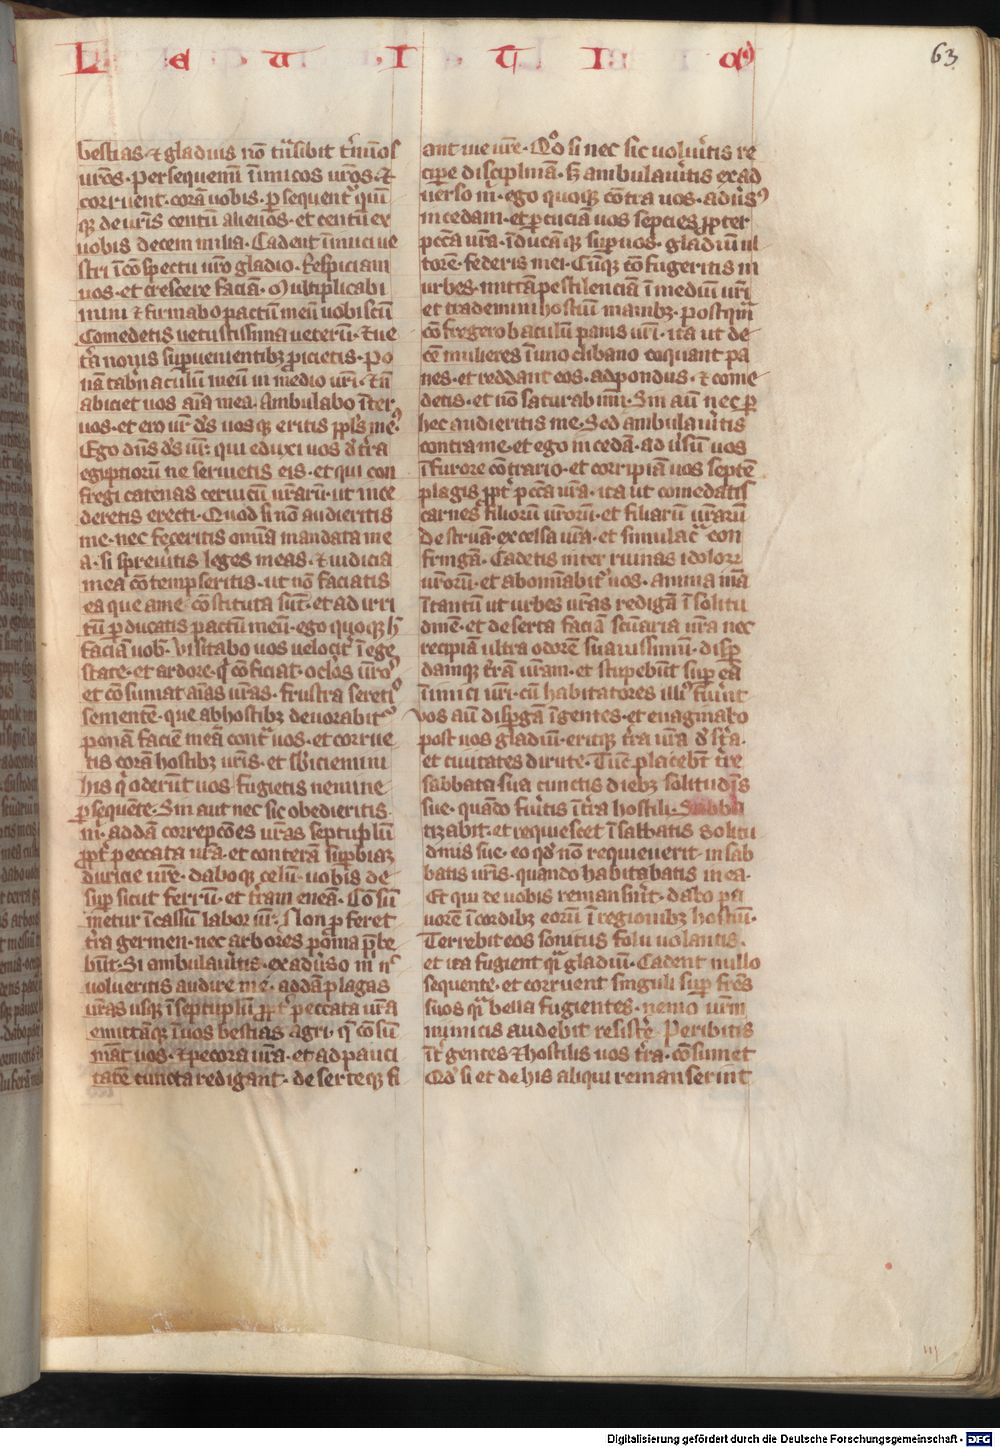 L e U I T I Cꝰ
63
bestias · ⁊ gladius nō tͣnsibit t̾minos
uros · ꝑsequemī īimicos uros · ⁊
corruent · corā uobis · ꝑsequent̾ quīī
qꝫ de uris centū alienos · et centū ex
uobis decem milia · Cadent īimici ue
stri ī cōspectu uro gladio · Respiciam
uos · et crescere faciā · Multiplicabi
mini ⁊ firmabo pactum meū uobiscū
Comedetis uetustissima ueterū · ⁊ ue
tͣa nouis supuenientibꝫ ꝓicietis · Po
nā tab̾naculū meū in medio uri · ⁊ ñ
abiciet uos aīa mea · Ambulabo īter
uos · et ero ur̄ ds̄ uosqꝫ eritis ppl̄s mꝰ
Ego dn̄s ds̄ ur̄ · qui eduxi uos d̾ t̾ra
egyptiorū ne seruietis eis · et qui con
fregi catenas ceruicū urarū · ut ince
deretis erecti · Quod si nō audieritis
me · nec feceritis omīa mandata me
a · si spreu̾itis leges meas · ⁊ iudicia
mea cōtempseritis · ut nō faciatis
ea que a me cōstituta sūt · et ad irri
tū ꝑducatis pactū meū · ego quoqꝫ h̄
faciā uob̄ · Visitabo uos uelocit̾ ī ege
state · et ardore · q̾ cōficiat · oc̾los ur̄os
et cōsumat aīas ur̄as · frustra seretis
sementē · que ab hostibꝫ deuorabit̾
ponā faciē meā contͣ uos · et corrue
tis corā hostibꝫ ur̄is · et sb̾iciemini
his q̾ oderunt uos · fugietis nemine
ꝑsequēte · Sin aut̄ nec sic obedieritis
m̄ · addā correpcōes ur̄as septuplū
ꝓpt̾ peccata ur̄a · et conterā supbiaꝫ
duricie ur̄e · daboqꝫ celū · uobis de
sup sicut ferrū · et t̾ram eneā · Cōsū
metur ī cassū labor ur̄ · Non ꝓferet
t̾ra germen · nec arbores poma p̄be
būt · Si ambulau̾itis · ex adu̾so m̄ n̾
uolueritis audire me · addā plagas
ur̄as usqꝫ ī septuplū ꝓpt̾ peccata ur̄a
emittāqꝫ ī uos bestias agri · q̄ cōsū
māt uos · ⁊ pecora ur̄a · et ad pauci
tatē cuncta redigant · deserteqꝫ fi
ant uie ur̄e · Qd̾ si nec sic uolu̾itis re
cipe disciplinā · sꝫ ambulau̾itis ex ad
uerso m̄ · ego quoqꝫ cōtra uos · adu̾sꝰ
incedam · et ꝑcuciā uos septies ꝓpter
pcc̄a ur̄a · īducāqꝫ sup uos · gladiū ul
torē · federis mei · Cūqꝫ cōfugeritis in
urbes · mittā pestilenciā ī mediū ur̄i
et trademini hostiū manibꝫ · postqͣ
cōfregero baculū panis ur̄i · ita ut de
cē mulieres ī uno clibano coquant pa
nes · et reddant eos · ad pondus · ⁊ come
detis · et nō saturabimī · Sin aū nec ꝑ
hec audieritis me · Sed ambulau̾itis
contra me · et ego incedā · adu̾sū uos
ī furore cōtrario · et corripiā uos septē
plagis ꝓpt̾ pcc̄a ur̄a · ita ut comedatis
carnes filiorū ur̄orū · et filiarū ur̄arū
destruā · excelsa ur̄a · et simulacͣ con
fringā · Cadetis inter ruinas idolorꝝ
ur̄orū · et abominabit̾ uos · anima mā
ītantū ut urbes ur̄as redigā ī solitu
dinē · et deserta faciā scūaria ur̄a nec
recipiā ultra odorē suauissimū · disp̾
damqꝫ t̾rā ur̄am · et stupebūt sup eā
īimici ur̄i · cū habitatores illiꝰ fiunt
Vos aū dispgā ī gentes · et euaginabo
post uos gladiū · eritqꝫ t̾ra ur̄a d̾s̾ta ·
et ciuitates dirute · Tūc placebūt t̾re
sabbata sua cunctis diebꝫ solitudīs
sue · quādo fu̾itis ī t̾ra hostili · Sabba
tizabit · et requiescet ī sabbatis solitu
dinis sue · eo qd̾ nō requieuerit · in sab
batis ur̄is · quando habitabatis in ea ·
Et qui de uobis remansīnt · dabo pa
uorē ī cordibꝫ eorū ī regionibꝫ hostiū ·
Terrebit eos sonitus folii uolantis ·
et ita fugient qͣ gladiū · Cadent nullo
sequente · et corruent singuli sup fr̄es
suos qͣ bella fugientes · nemo ur̄m
inimicis audebit resist̾e · Peribitis
īt̾ gentes ⁊ hostilis uos t̾ra · cōsumet
Qd̾ si et de his aliqui remanserint
Digitalisierung gefördert durch die Deutsche Forschungsgemeinschaft - DFG